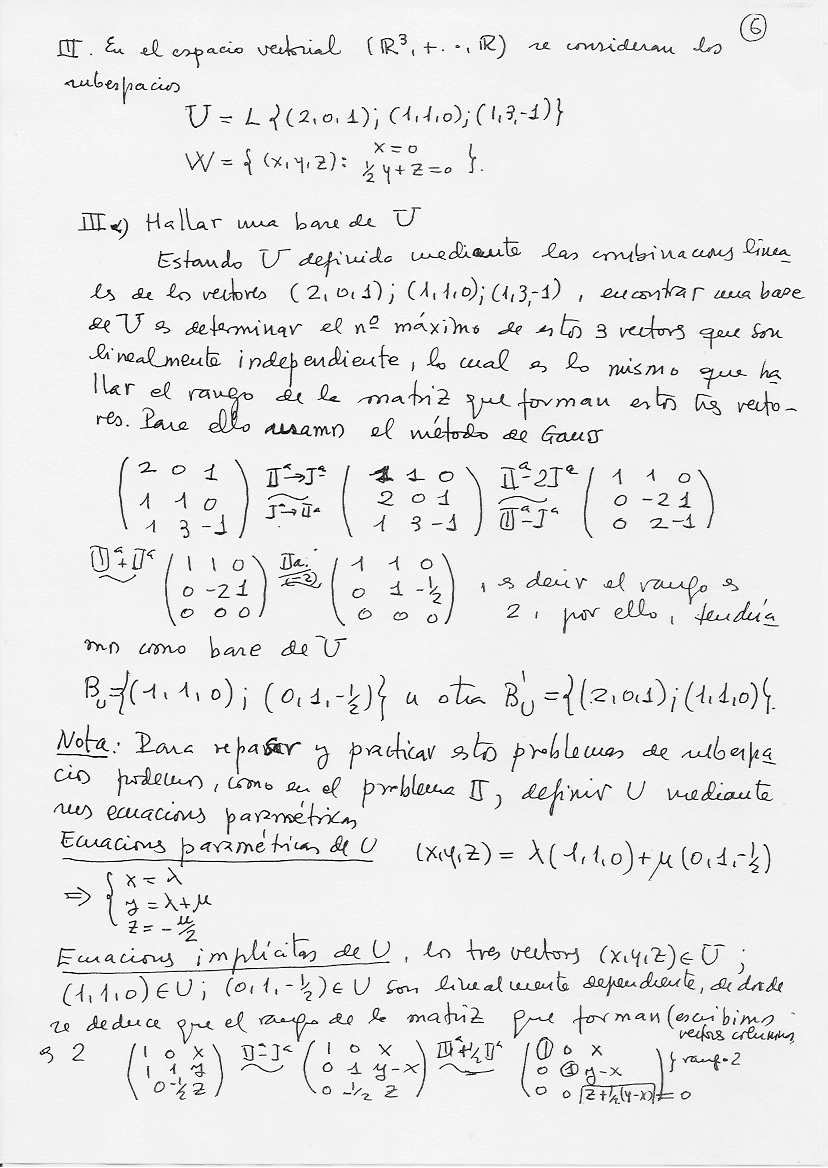 6
III. En el espacio vectorial (ℝ³, +. ·, ℝ) se consideran los
subespacios
U = L {(2,0,1); (1,1,0); (1,3,-1)}
W = { (x,y,z): x=0
½y+z=0 }.
III a) Hallar una base de U
Estando U definido mediante las combinacions linea
les de los vectores (2,0,1); (1,1,0); (1,3,-1), encontrar una base
de U es determinar el nº máximo de estos 3 vectors que son
linealmente independiente, lo cual es lo mismo que ha
llar el rango de la matriz que forman estos tres vecto-
res. Para ello usamos el método de Gauss
( 2 0 1 ) IIª→Iª ( 1 1 0 ) IIª-2Iª ( 1 1 0 )
( 1 1 0 ) Iª→IIª ( 2 0 1 ) IIIª-Iª ( 0 -2 1 )
( 1 3 -1 ) ( 1 3 -1 ) ( 0 2 -1 )
IIIª+IIª ( 1 1 0 ) IIa: ( 1 1 0 )
( 0 -2 1 ) (-2) ( 0 1 -½ ) , es decir el rango es
( 0 0 0 ) ( 0 0 0 ) 2, por ello, tendría
mos como base de U
B_U={(1,1,0); (0,1,-½)} u otra B'_U={(2,0,1);(1,1,0)}.
Nota: Para repasar y practicar estos problemas de subespa
cios podemos, como en el problema II, definir U mediante
sus ecuacions paramétricas
Ecuacions paramétricas de U (x,y,z) = λ(1,1,0)+μ(0,1,-½)
⇒ { x = λ
y = λ+μ
z = -μ/2
Ecuacions implícitas de U, los tres vectors (x,y,z)∈U;
(1,1,0)∈U; (0,1,-½)∈U son linealmente dependiente, de donde
se deduce que el rango de la matriz que forman (escribimos
vectors columnas
es 2 ( 1 0 x ) IIª-Iª ( 1 0 x ) IIIª+½IIª ( 1 0 x )
( 1 1 y ) ( 0 1 y-x ) ( 0 1 y-x ) } rang=2
( 0 -½ z ) ( 0 -½ z ) ( 0 0 z+½(y-x) ) = 0